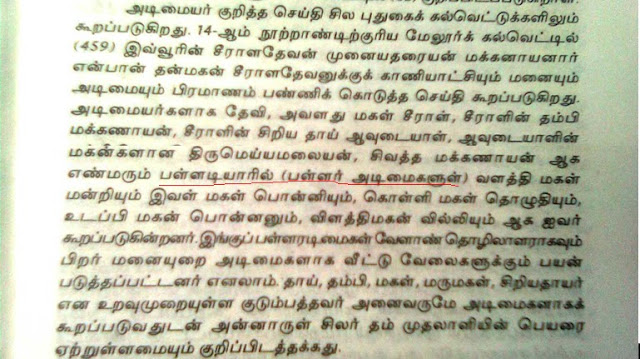 அடிமையர் குறித்த செய்தி சில புதுகைக் கல்வெட்டுக்களிலும்
கூறப்படுகிறது. 14-ஆம் நூற்றாண்டிற்குரிய மேலூர்க் கல்வெட்டில்
(459) இவ்வூரின் சீராளதேவன் முனையதரையன் மக்கனாயனார்
என்பான் தன்மகன் சீராளதேவனுக்குக் காணியாட்சியும் மனையும்
அடிமையும் பிரமாணம் பண்ணிக் கொடுத்த செய்தி கூறப்படுகிறது.
அடிமையர்களாக தேவி, அவளது மகள் சீராள், சீராளின் தம்பி
மக்கணாயன், சீராளின் சிறிய தாய் ஆவுடையாள், ஆவுடையாளின்
மகன்களான திருமெய்யமலையன், சிவத்த மக்கணாயன் ஆக
எண்மரும் பள்ளடியாரில் (பள்ளர் அடிமைகளுள்) வளத்தி மகள்
மன்றியும் இவள் மகள் பொன்னியும், கொள்ளி மகள் தொழுதியும்,
உடப்பி மகன் பொன்னனும், விளத்திமகன் வில்லியும் ஆக ஐவர்
கூறப்படுகின்றனர். இங்குப்பள்ளரடிமைகள் வேளாண் தொழிலாளராகவும்
பிறர் மனையுறை அடிமைகளாக வீட்டு வேலைகளுக்கும் பயன்
படுத்தப்பட்டனர் எனலாம். தாய், தம்பி, மகள், மருமகள், சிறியதாயர்
என உறவுமுறையுள்ள குடும்பத்தவர் அனைவருமே அடிமைகளாகக்
கூறப்படுவதுடன் அன்னாருள் சிலர் தம் முதலாளியின் பெயரை
ஏற்றுள்ளமையும் குறிப்பிடத்தக்கது.